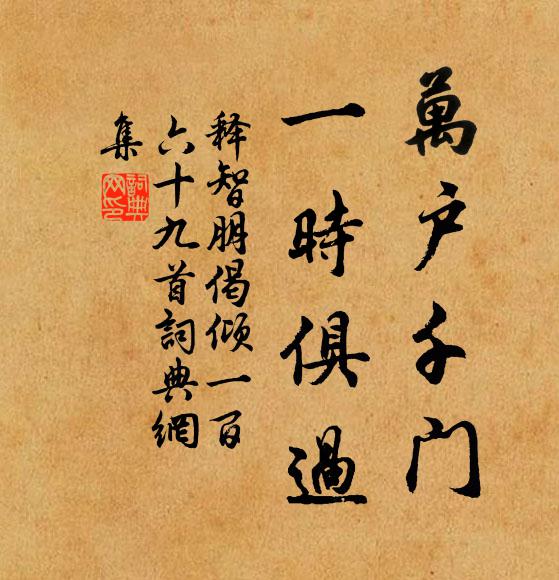 萬户千门
一時俱過
释智朋偈倾一百
六十九首詞典網
集
詞典網印